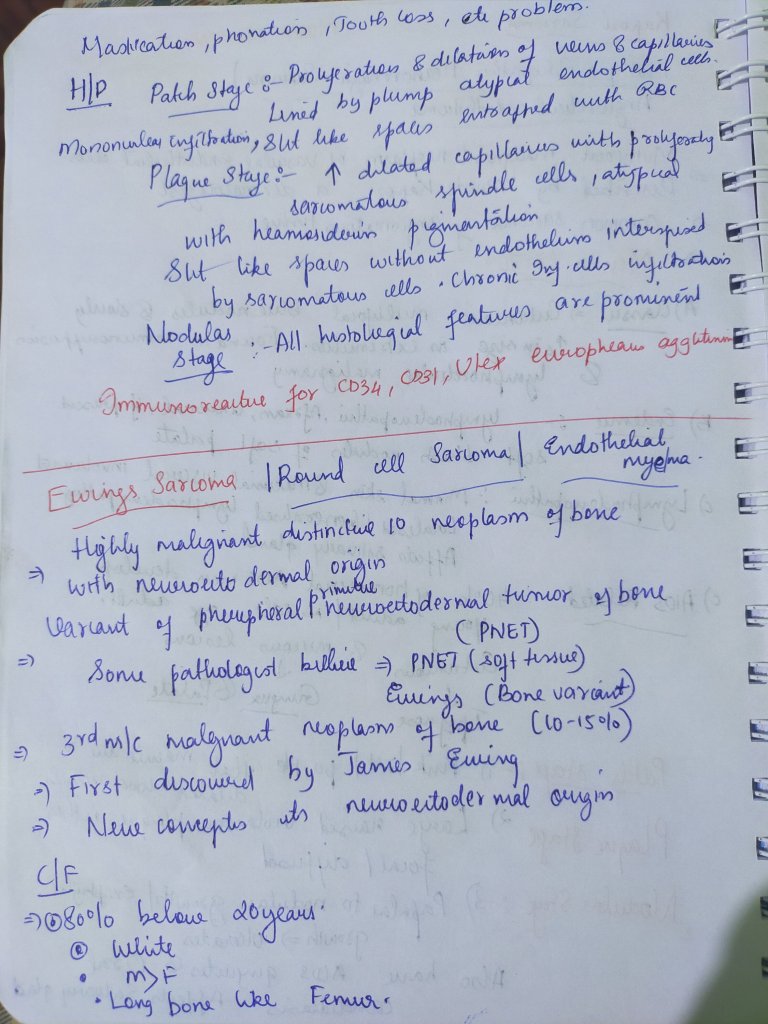 Mastication, phonation, Tooth loss, etc problem.
H/P Patch Stage :- Proliferation & dilatation of veins & capillaries
Lined by plump atypical endothelial cells.
Mononuclear infiltration, Slit like spaces entrapped with RBC
Plaque Stage :- ↑ dilated capillaries with proliferaty
sarcomatous spindle cells, atypical
with heamosiderin pigmentation
Slit like spaces without endothelium interspused
by sarcomatous cells. Chronic Inf. cells infiltration
Nodular Stage :- All histological features are prominent
Immunoreactive for CD34, CD31, Ulex europheaus agglutinin
Ewings Sarcoma | Round cell Sarcoma | Endothelial myeloma.
Highly malignant distinctive 10 neoplasm of bone
⇒ with neuroectodermal origin
Variant of pheripheral primitive neuroectodermal tumor of bone
(PNET)
⇒ Some pathologist believe ⇒ PNET (soft tissue)
Ewings (Bone variant)
⇒ 3rd m/c malignant neoplasm of bone (10-15%)
⇒ First discovered by James Ewing
⇒ New concepts its neuroectodermal origin
C/F
⇒ 80% below 20 years.
White
• m>F
• Long bone like Femur.